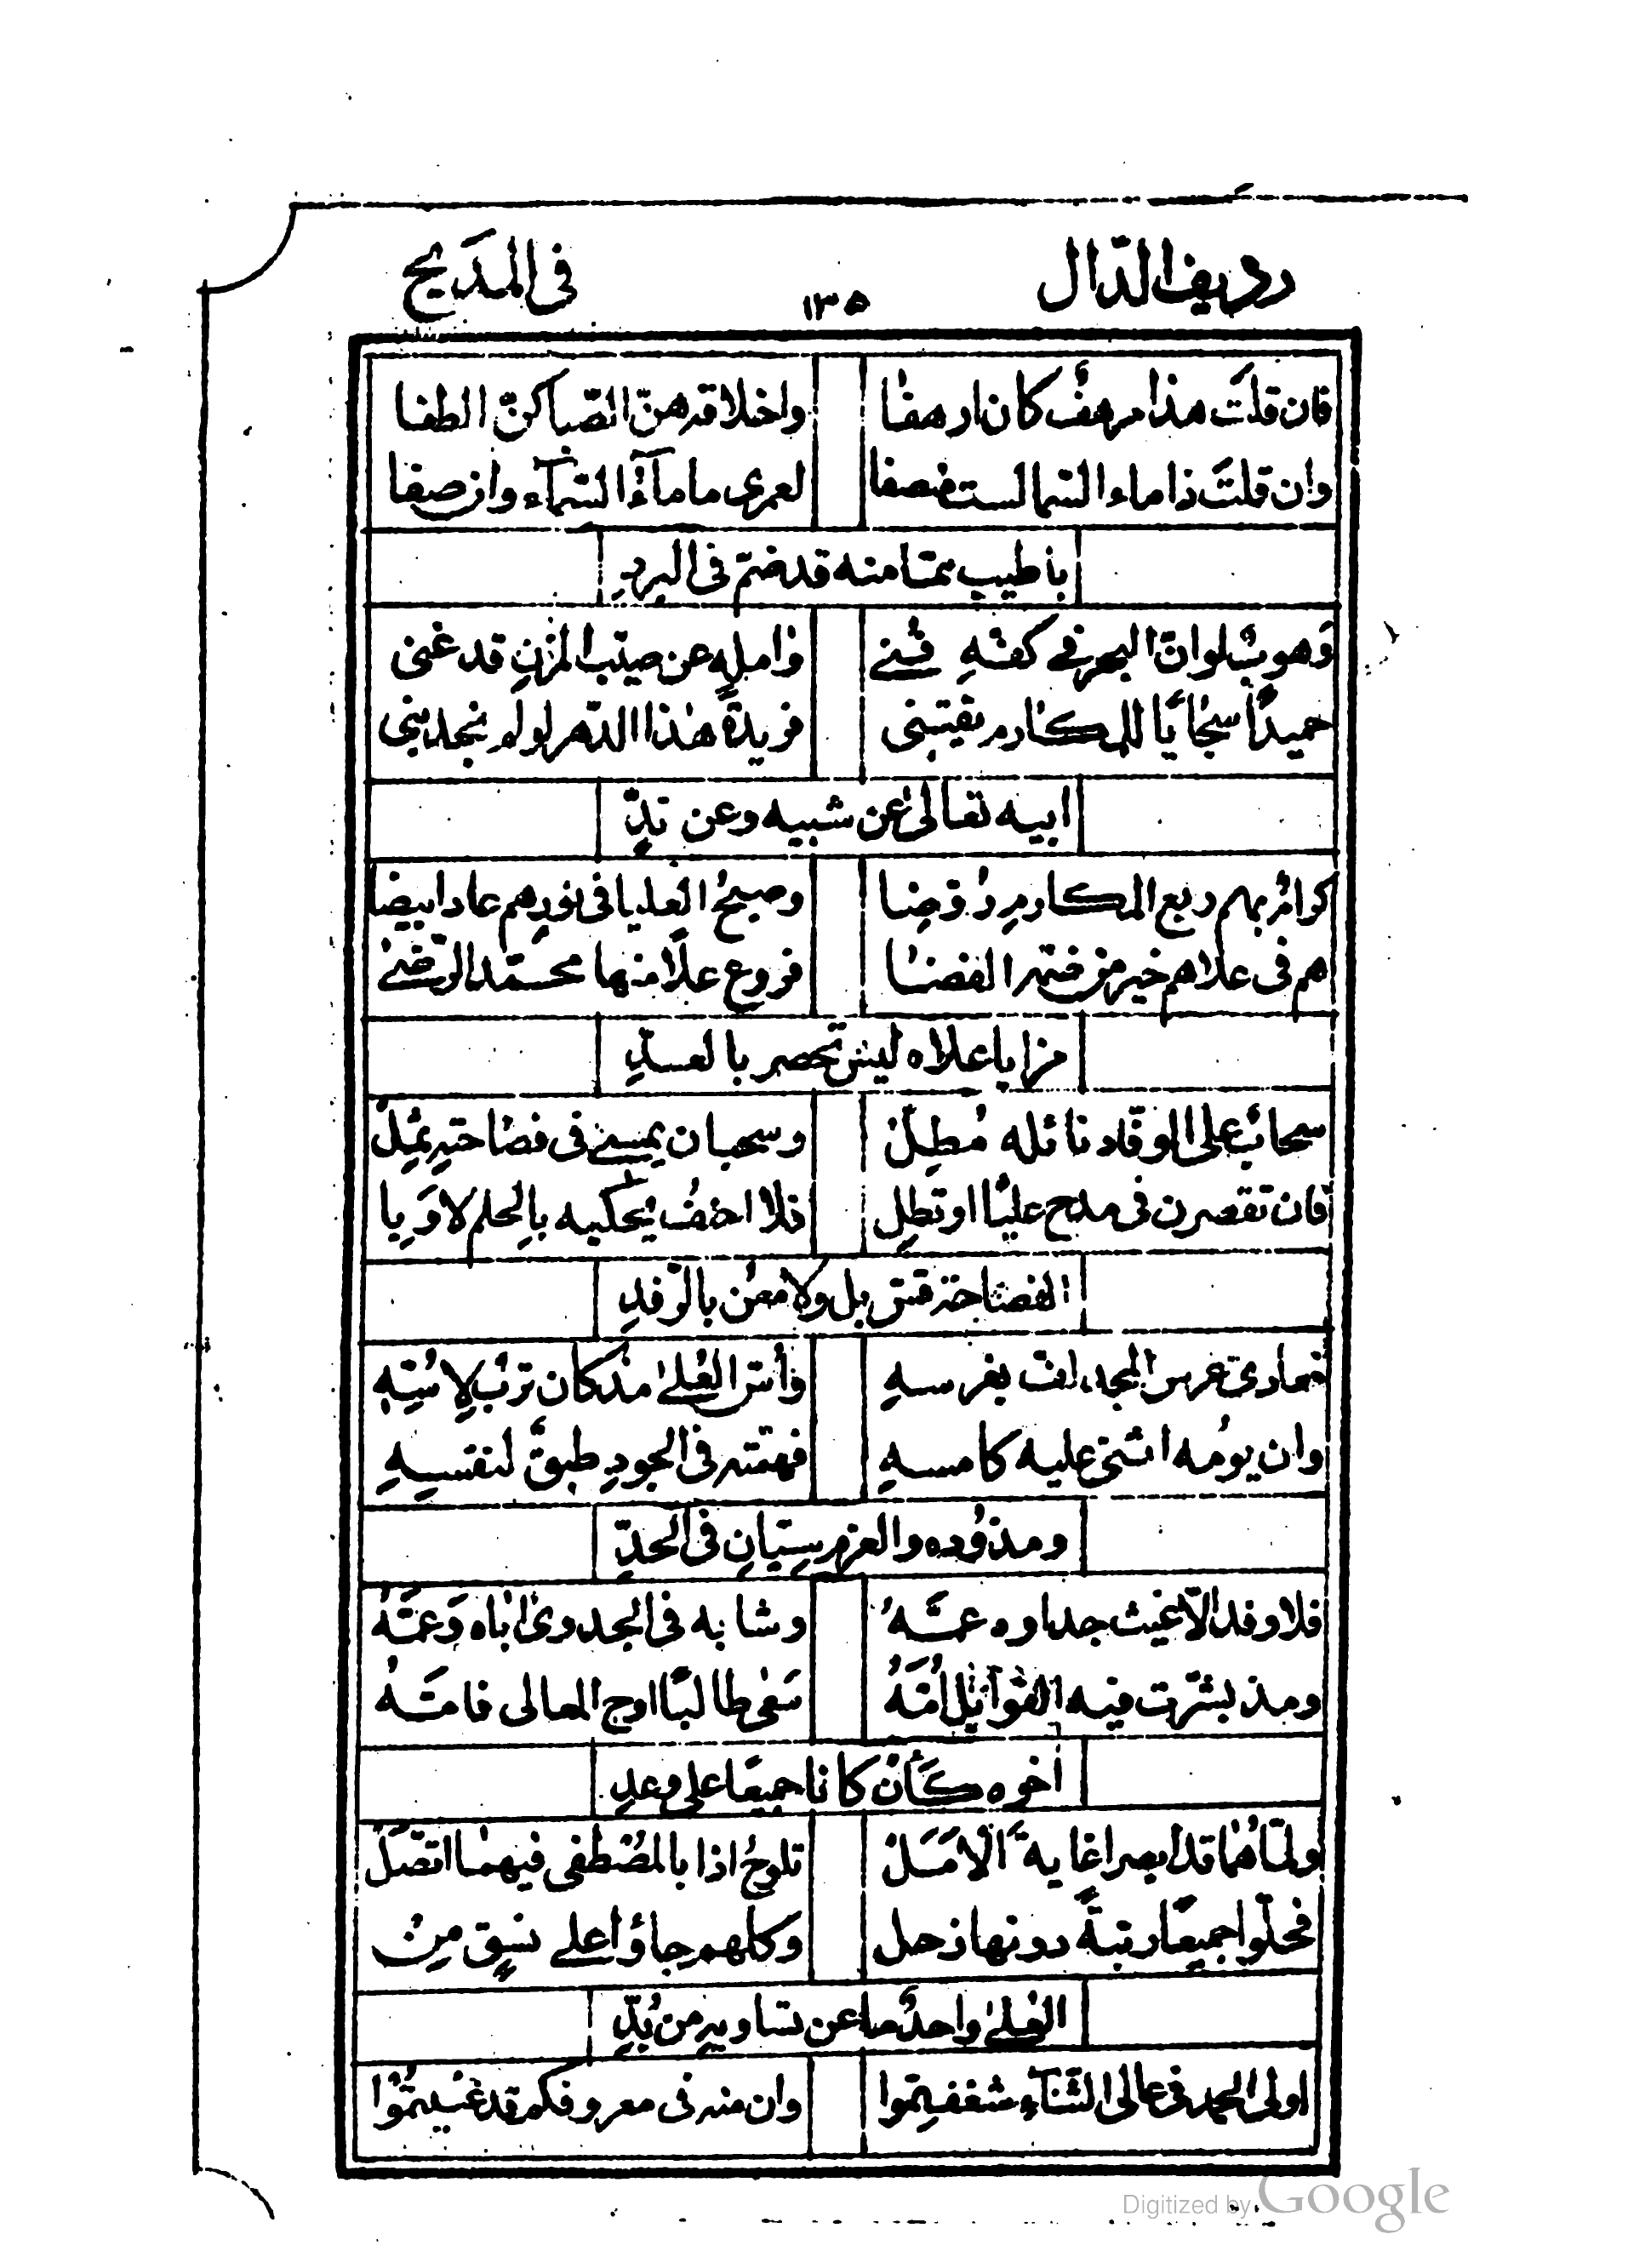 رديف الدّال ١٣٥ فى المديح
فان قلت هذا مرهف كان ارهفا واخلاقه هنّ الصّبا كنّ الطفا
وان قلت ذا ماء السّما لست منصفا لعمرى ما ماءُ السّمآء وان صفا
باطيب ممّا منه قد ضمّ فى البردِ
وَهوبٌ لوانّ البحر فے كفّهِ فنے وامله عن صيّب المزنِ قد غنى
حميدًا سجايا للمكارم يقتنى فريدة هذا الدّهر لو لم نجد بنى
ابيه تعالى عن شبيه وعن ندِّ
كرامٌ بهم ربع المكارمِ رُوّضا وصبحُ العليا فى نورهم عاد ابيضا
هم فى علاهم خير من ضمّه الفضا فروع علًا منها محمّد الرّضىٰ
مزايا علاه ليس تحصر بالعدِّ
سحائب على الوفّاد نائله مُطِلّ وسحبان يمسے فى فصاحته يمثِل
فان تقصرن فى مدح عليا او تطِل فلا احنفٌ يحكيه بالحلم لا وَيا
الفصاحة قسّ بل ولا معن بالرّفدِ
غرس المجد انت بغرسهِ واُسّ العُلىٰ مذ كان تربٌ لاُسّهِ
وان يومُه اثنى عليه كامسهِ فهمّته فى الجودِ طبقٌ لنفسهِ
ومذوُده والعزم سِيّانِ فى الحدِّ
فلا وفد الّا غيث جدواه عمّهُ وشابه فى الجدوىٰ اباه وَعمّهُ
ومذ بشّرت فيه القوابِل اُمّهُ سَعىٰ طالبًا اوج المعالى فامّهُ
اخوه كأن كانا جميعًا على وعدِ
ولمّا هُما قد ابصرا غاية الاَمَلْ تلوحُ اذا بالمصُطفى فيهما اتّصَلْ
فحلّوا جميعًا رتبةً دونها زحل وكلهم جاؤا علے نسقٍ مِن
العُلىٰ واحدًا ما عن تساويهِ من بُدِّ
اولى الحمد فى عالى الثّنآء شغفتموا وان منه فى معروفكم قد غنيتموا
Digitized by Google